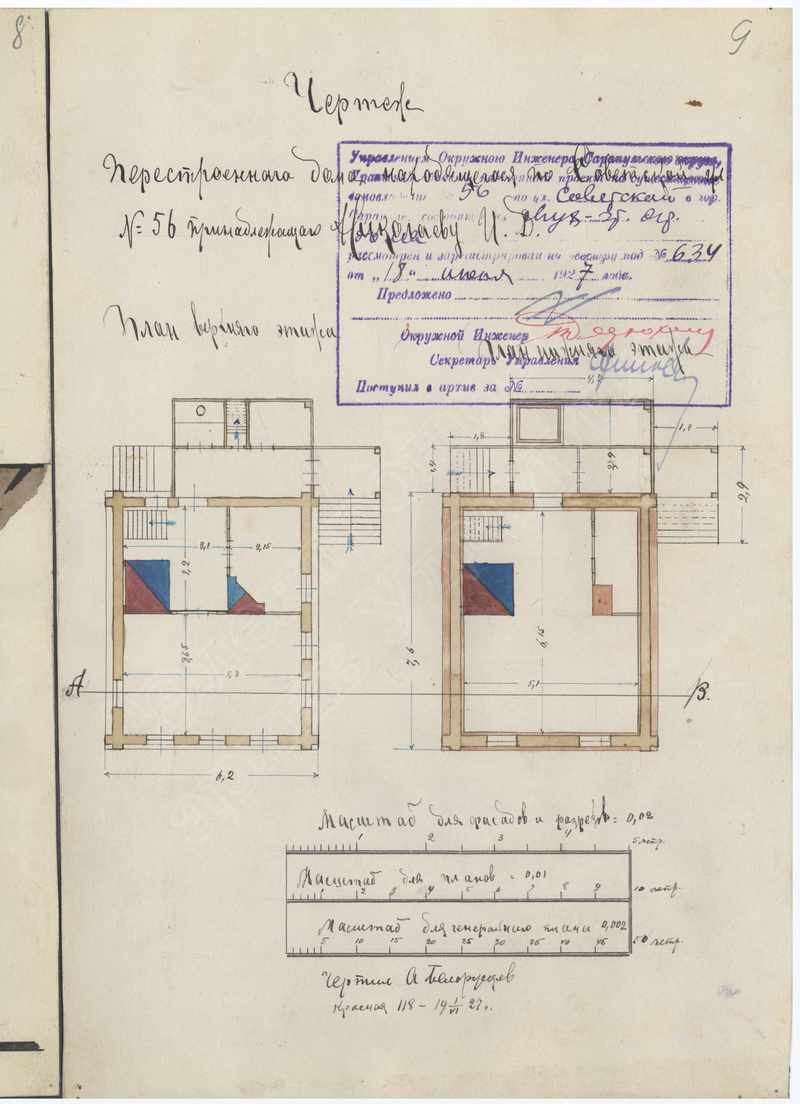 8
9
Чертеж
Перестроеннаго дома находящегося по Советской ул
№ 56 принадлежащаго Николаеву И. Д.
Управлением Окружною Инженера Сарапульского округа,
56 по ул. Советской в гор.
двух-эт.
рассмотрен и зарегистрирован по реестру под № 634
от „18“ июня 1927 года.
Предложено
Окружной Инженер
Секретарь Управления
Поступил в архив за №
План верхняго этажа
План нижняго этажа
4,2
1,8
1,8
2,9
2,9
2,1
2,15
3,65
5,3
6,2
7,6
6,15
5,1
А
В.
Масштаб для фасадов и разрезов = 0,02
1 2 3 4 5 метр.
Масштаб для планов = 0,01
1 2 3 4 5 6 7 8 9 10 метр.
Масштаб для генеральнаго плана 0,002
5 10 15 20 25 30 35 40 45 50 метр.
Чертил А Белорусцев
Красная 118 – 19 1/VI 27 г.